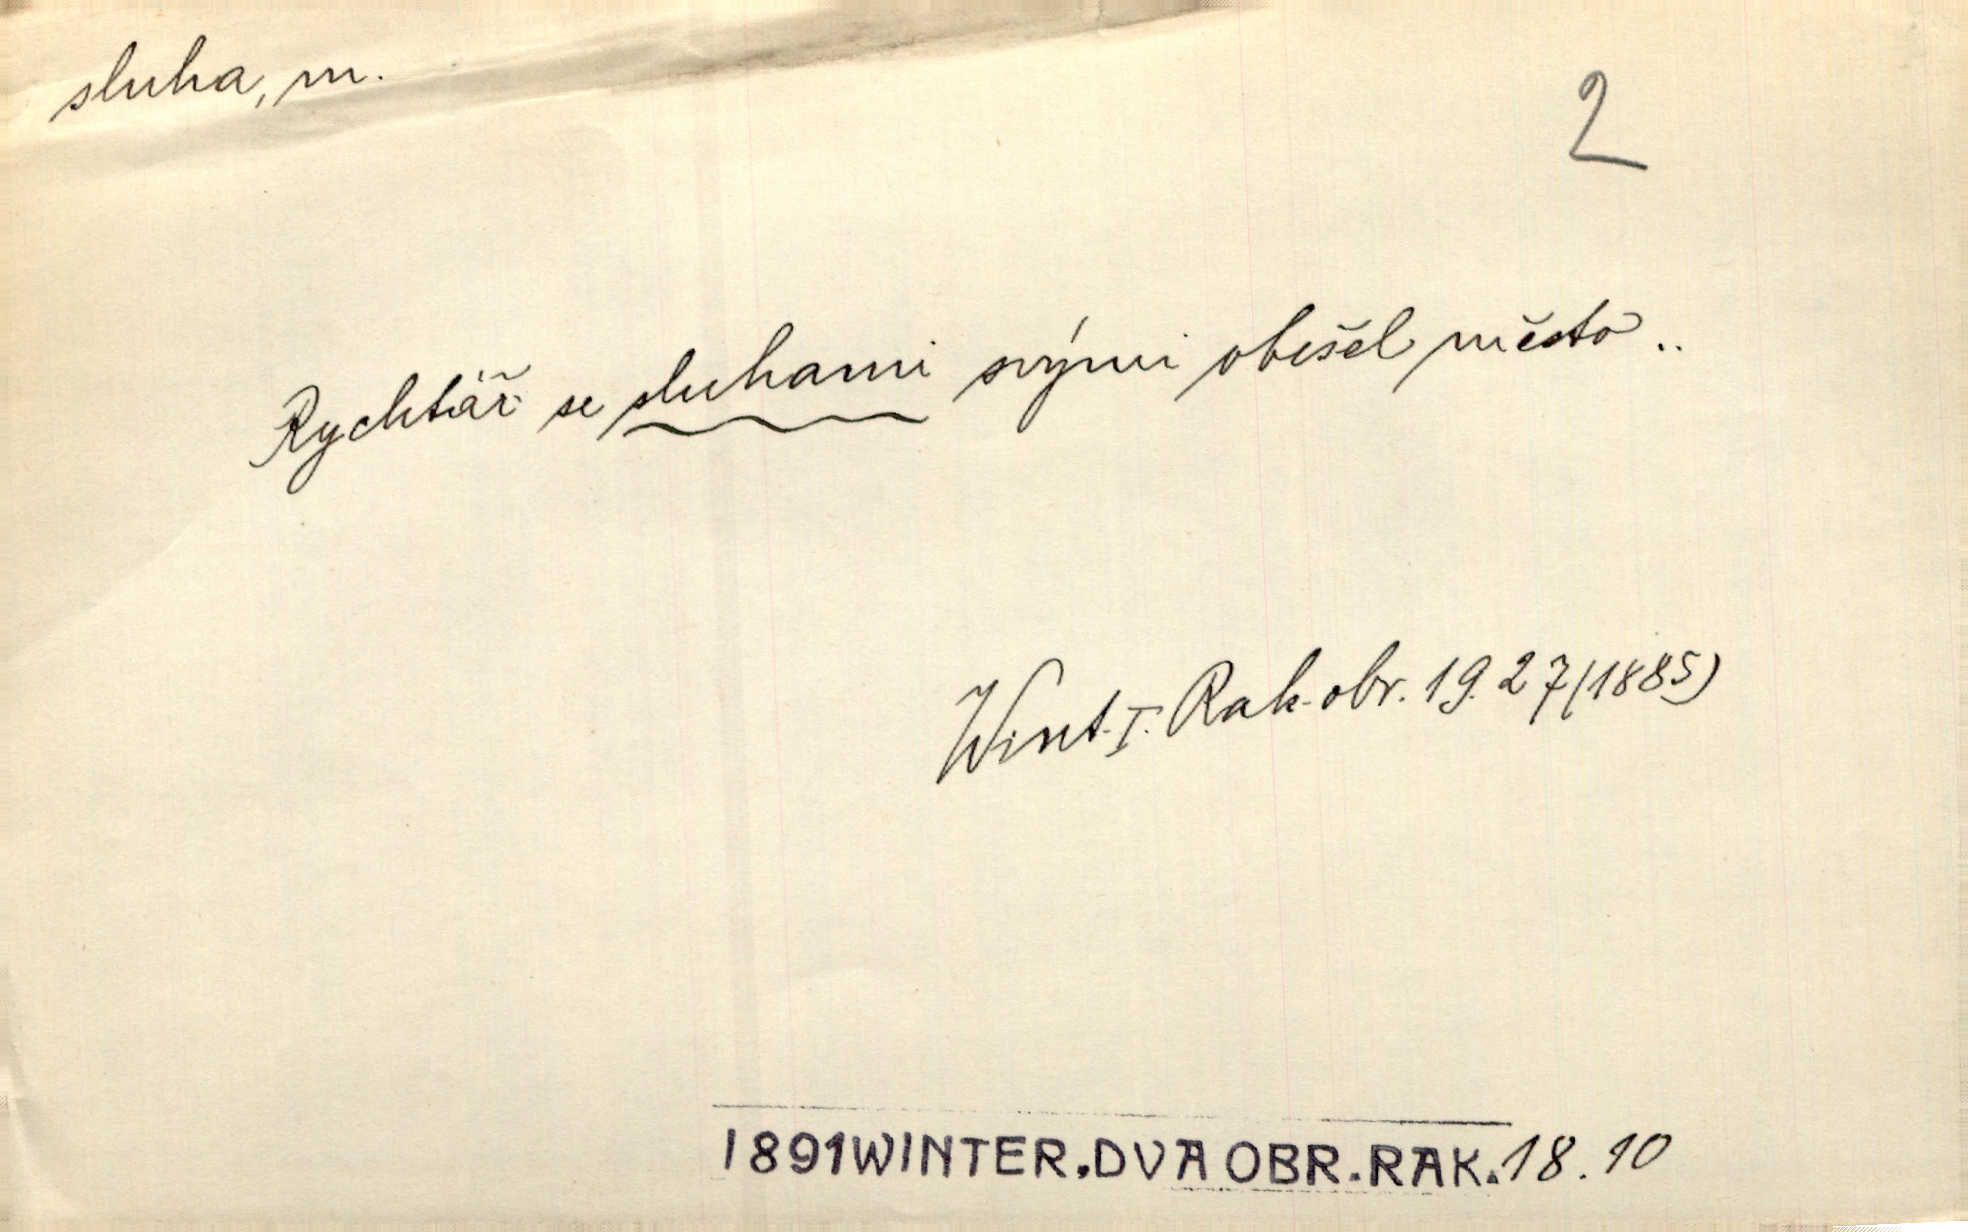 sluha, m.
2
Rychtář se sluhami svými obešel město..
Wint. I. Rak. obr. 19. 27 (1885)
1891 WINTER, DVA OBR. RAK. 18. 10